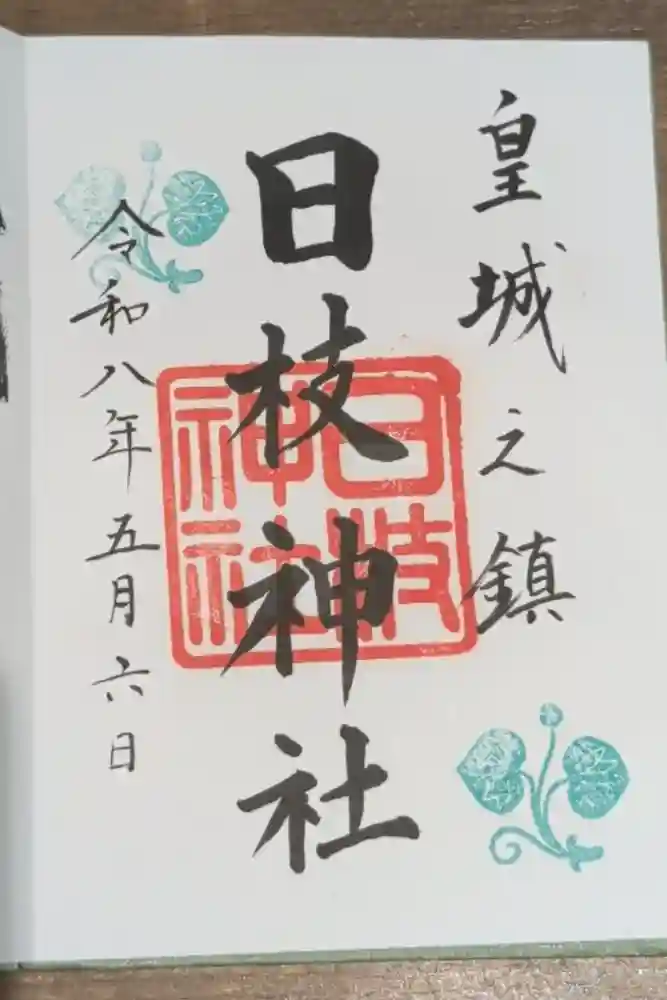 皇城之鎮
日枝神社
日枝
神社
令和八年五月六日